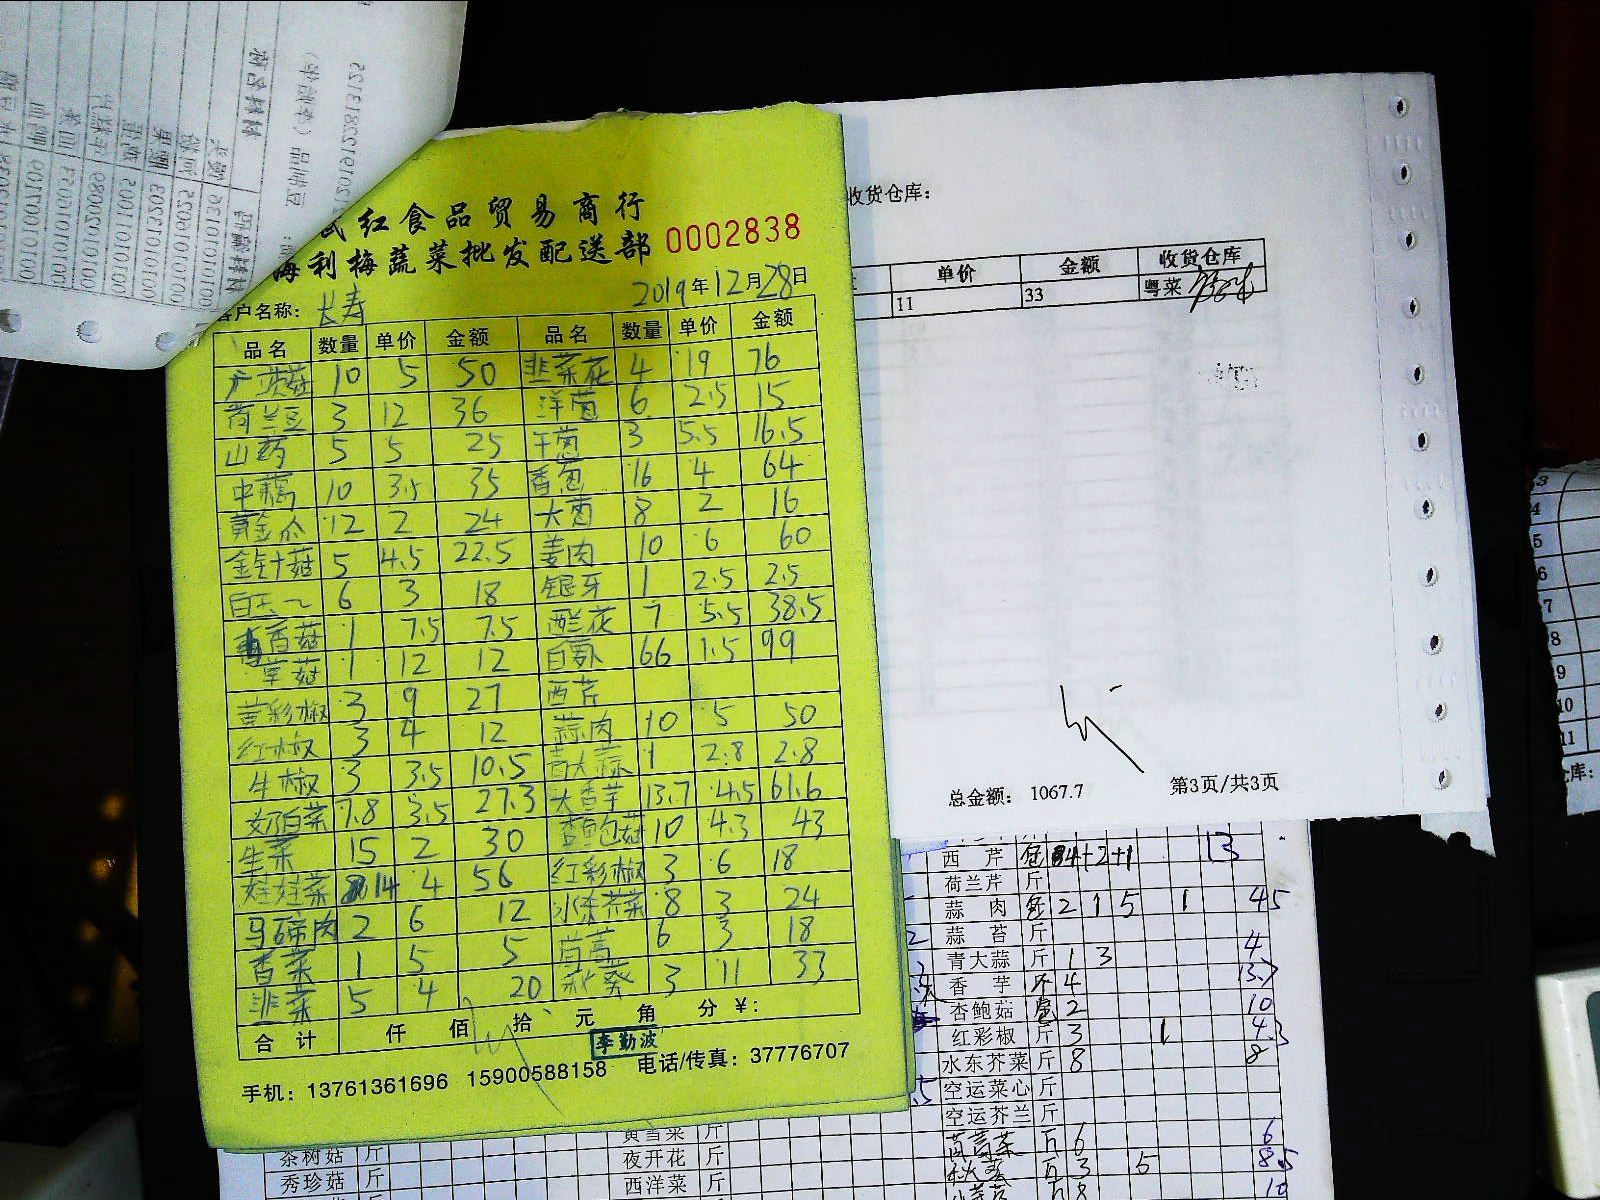 红食品贸易商行
海利梅蔬菜批发配送部 0002838
2019年12月28日
客户名称: 长寿
品名 数量 单价 金额 品名 数量 单价 金额
10 5 50 韭菜花 4 19 76
荷兰豆 3 12 36 洋葱 6 2.5 15
山药 5 5 25 干葱 3 5.5 16.5
中藕 10 3.5 35 香葱 16 4 64
黄金瓜 12 2 24 大葱 8 2 16
金针菇 5 4.5 22.5 姜肉 10 6 60
白玉 6 3 18 银牙 1 2.5 2.5
香菇 1 7.5 7.5 西兰花 7 5.5 38.5
草菇 1 12 12 白卜 66 1.5 99
黄彩椒 3 9 27 西芹
红椒 3 4 12 蒜肉 10 5 50
牛椒 3 3.5 10.5 青大蒜 1 2.8 2.8
奶白菜 7.8 3.5 27.3 大香芋 13.7 4.5 61.6
生菜 15 2 30 杏鲍菇 10 4.3 43
娃娃菜 14 4 56 红彩椒 3 6 18
马蹄肉 2 6 12 水东芥菜 8 3 24
香菜 1 5 5 茼蒿 6 3 18
韭菜 5 4 20 秋葵 3 11 33
合计 仟 佰 拾 元 角 分 ¥:
李勤波
手机: 13761361696 15900588158 电话/传真: 37776707
收货仓库:
单价 金额 收货仓库
11 33 粤菜
总金额: 1067.7 第3页/共3页
西芹 4+2+1 13
荷兰芹 斤
蒜肉 2 1 5 1 45
蒜苔 斤
青大蒜 斤 1 3 4
香芋 4 13.7
杏鲍菇 2 10
红彩椒 斤 3 1 4.3
水东芥菜 斤 8 8
空运菜心 斤
空运芥兰 斤
茼蒿菜 斤 6 6
秋葵 斤 3 5 8.5
8 10
黄雪菜 斤
茶树菇 斤 夜开花 斤
秀珍菇 斤 西洋菜 斤